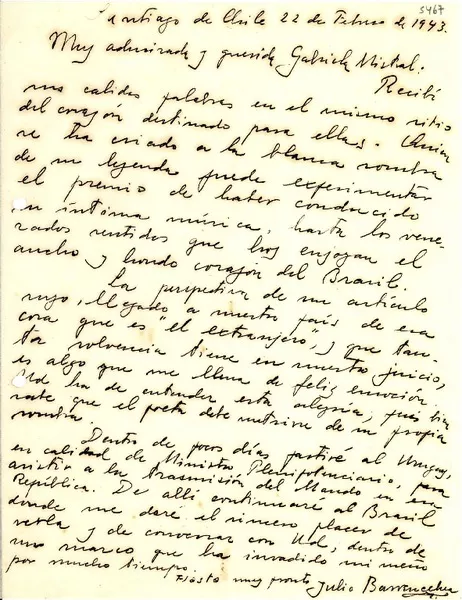 5467
Santiago de Chile 22 de Febrero de 1943.
Muy admirada y querida Gabriela Mistral:
Recibí
sus cálidas palabras en el mismo sitio
del corazón destinado para ellas. Quien
se ha criado a la blanca sombra
de su leyenda puede experimentar
el premio de haber conducido
su íntima música, hasta los vene-
rados sentidos que hoy enjoyan el
ancho y hondo corazón del Brasil.
La perspectiva de un artículo
suyo, llegado a nuestro país de esa
cosa que es "el extranjero", y que tan-
ta solvencia tiene en nuestro juicio,
es algo que me llena de feliz emoción.
Ud. ha de entender esta alegría, pues bien
sabe que el poeta debe nutrirse de su propia
sombra.
Dentro de pocos días partiré al Uruguay,
en calidad de Ministro Plenipotenciario, para
asistir a la Trasmisión del Mando en esa
República. De allí continuaré al Brasil
donde me daré el sincero placer de
verla y de conversar con Ud., dentro de
un marco que ha invadido mi sueño
por mucho tiempo.
Hasta muy pronto Julio Barrenechea